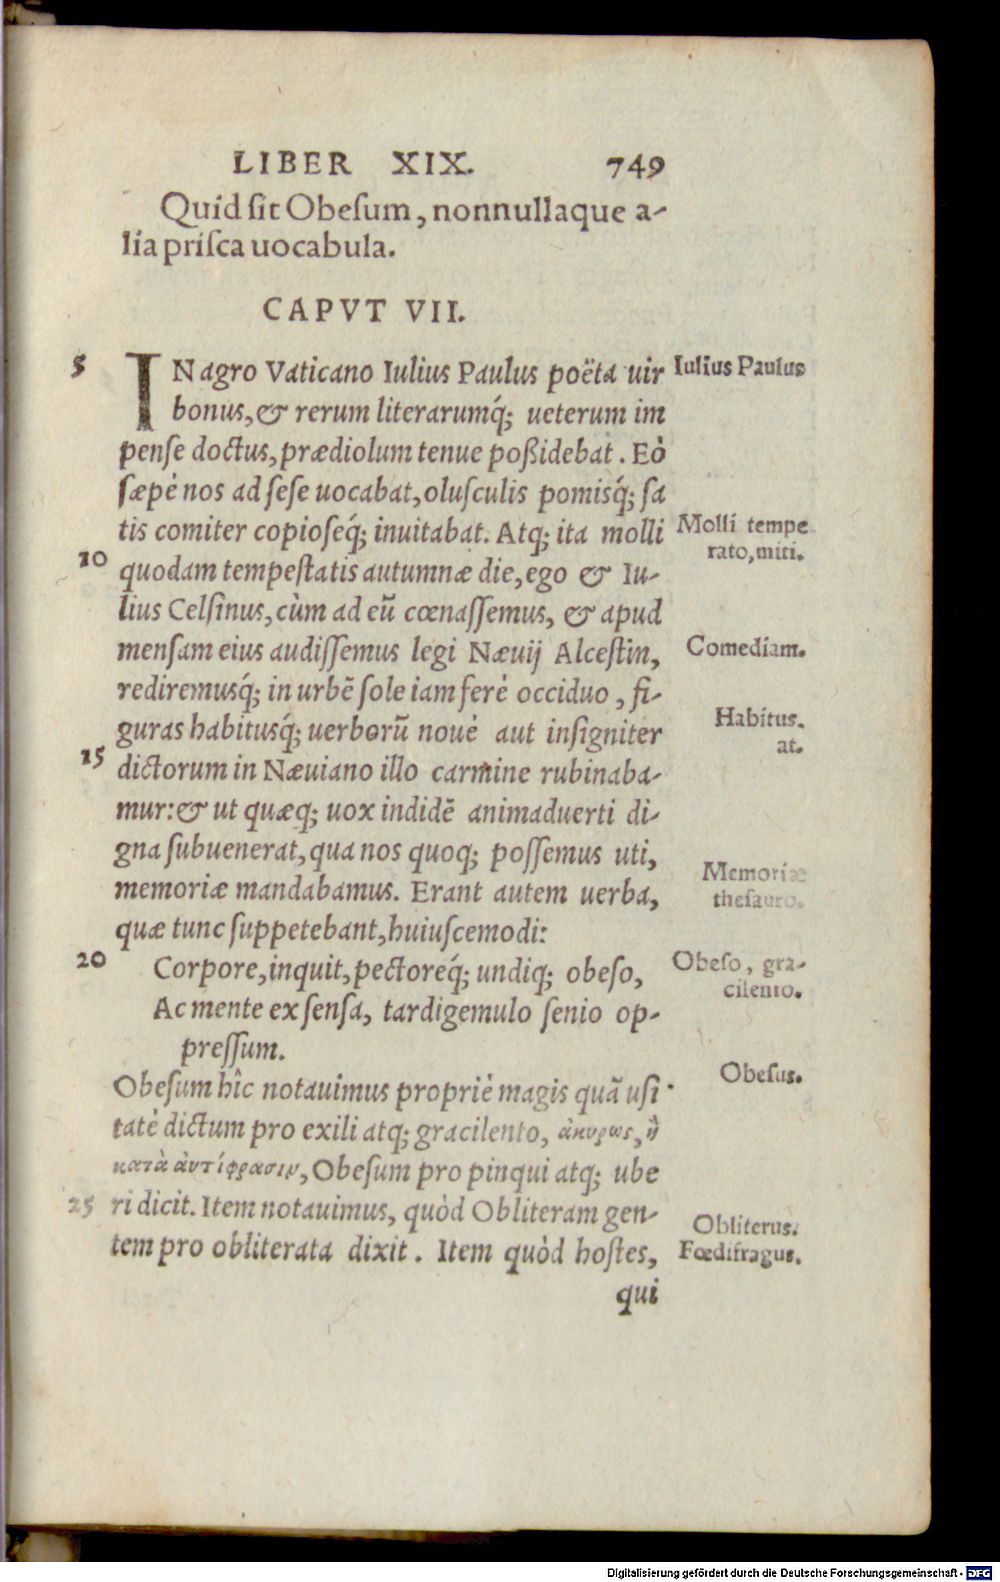 LIBER XIX. 749
Quid sit Obesum, nonnullaque a-
lia prisca uocabula.
CAPVT VII.
5 IN agro Vaticano Iulius Paulus poëta uir Iulius Paulus
bonus, & rerum literarumq́; ueterum im
pense doctus, prædiolum tenue poßidebat. Eò
sæpè nos ad sese uocabat, olusculis pomisq́; sa
tis comiter copioseq́; inuitabat. Atq; ita molli Molli tempe
rato, miti.
10 quodam tempestatis autumnæ die, ego & Iu-
lius Celsinus, cùm ad eũ cœnassemus, & apud
mensam eius audissemus legi Næuij Alcestin, Comediam.
rediremusq́; in urbẽ sole iam ferè occiduo, fi-
guras habitusq́; uerborũ nouè aut insigniter Habitus.
at.
15 dictorum in Næuiano illo carmine rubinaba-
mur: & ut quæq; uox indidẽ animaduerti di-
gna subuenerat, qua nos quoq; possemus uti, Memoriæ
memoriæ mandabamus. Erant autem uerba, thesauro.
quæ tunc suppetebant, huiuscemodi:
20 Corpore, inquit, pectoreq́; undiq; obeso, Obeso, gra-
cilento.
Ac mente exsensa, tardigemulo senio op-
pressum.
Obesum hîc notauimus propriè magis quã usi Obesus.
tatè dictum pro exili atq; gracilento, ἀκυρως, ἢ
κατὰ ἀντίφρασιν, Obesum pro pinqui atq; ube
25 ri dicit. Item notauimus, quòd Obliteram gen- Obliterus.
tem pro obliterata dixit. Item quòd hostes, Fœdifragus.
qui
Digitalisierung gefördert durch die Deutsche Forschungsgemeinschaft - DFG